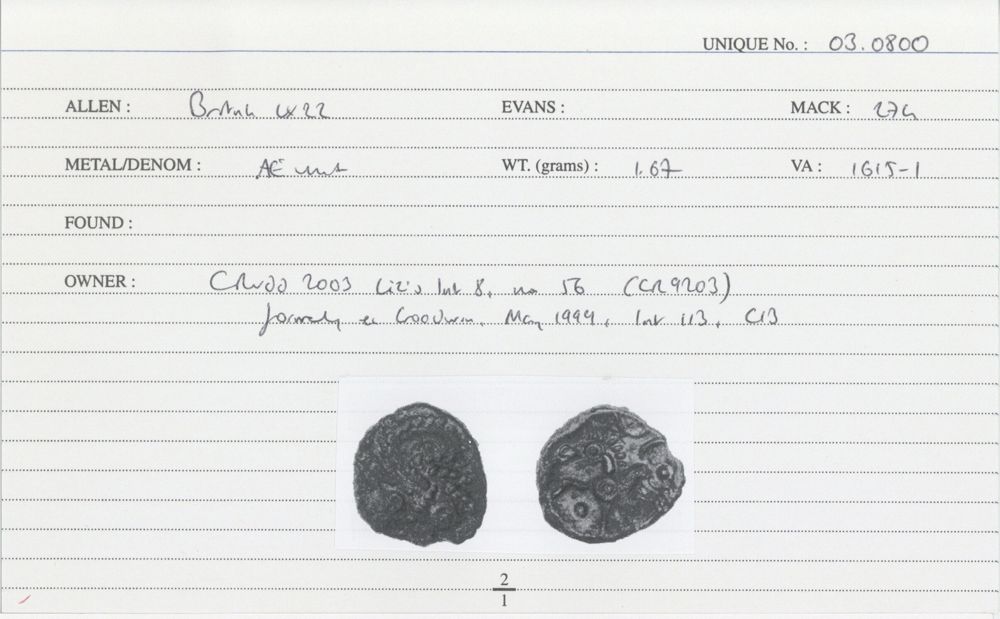 UNIQUE No. : 03.0800
ALLEN : British LX22 EVANS : MACK : 274
METAL/DENOM : AE unit WT. (grams) : 1.67 VA : 1615-1
FOUND :
OWNER : CRudd 2003 Liz's list 8, no 56 (CR9203)
formerly ex Goodwin, May 1999, list 113, C13
2
1